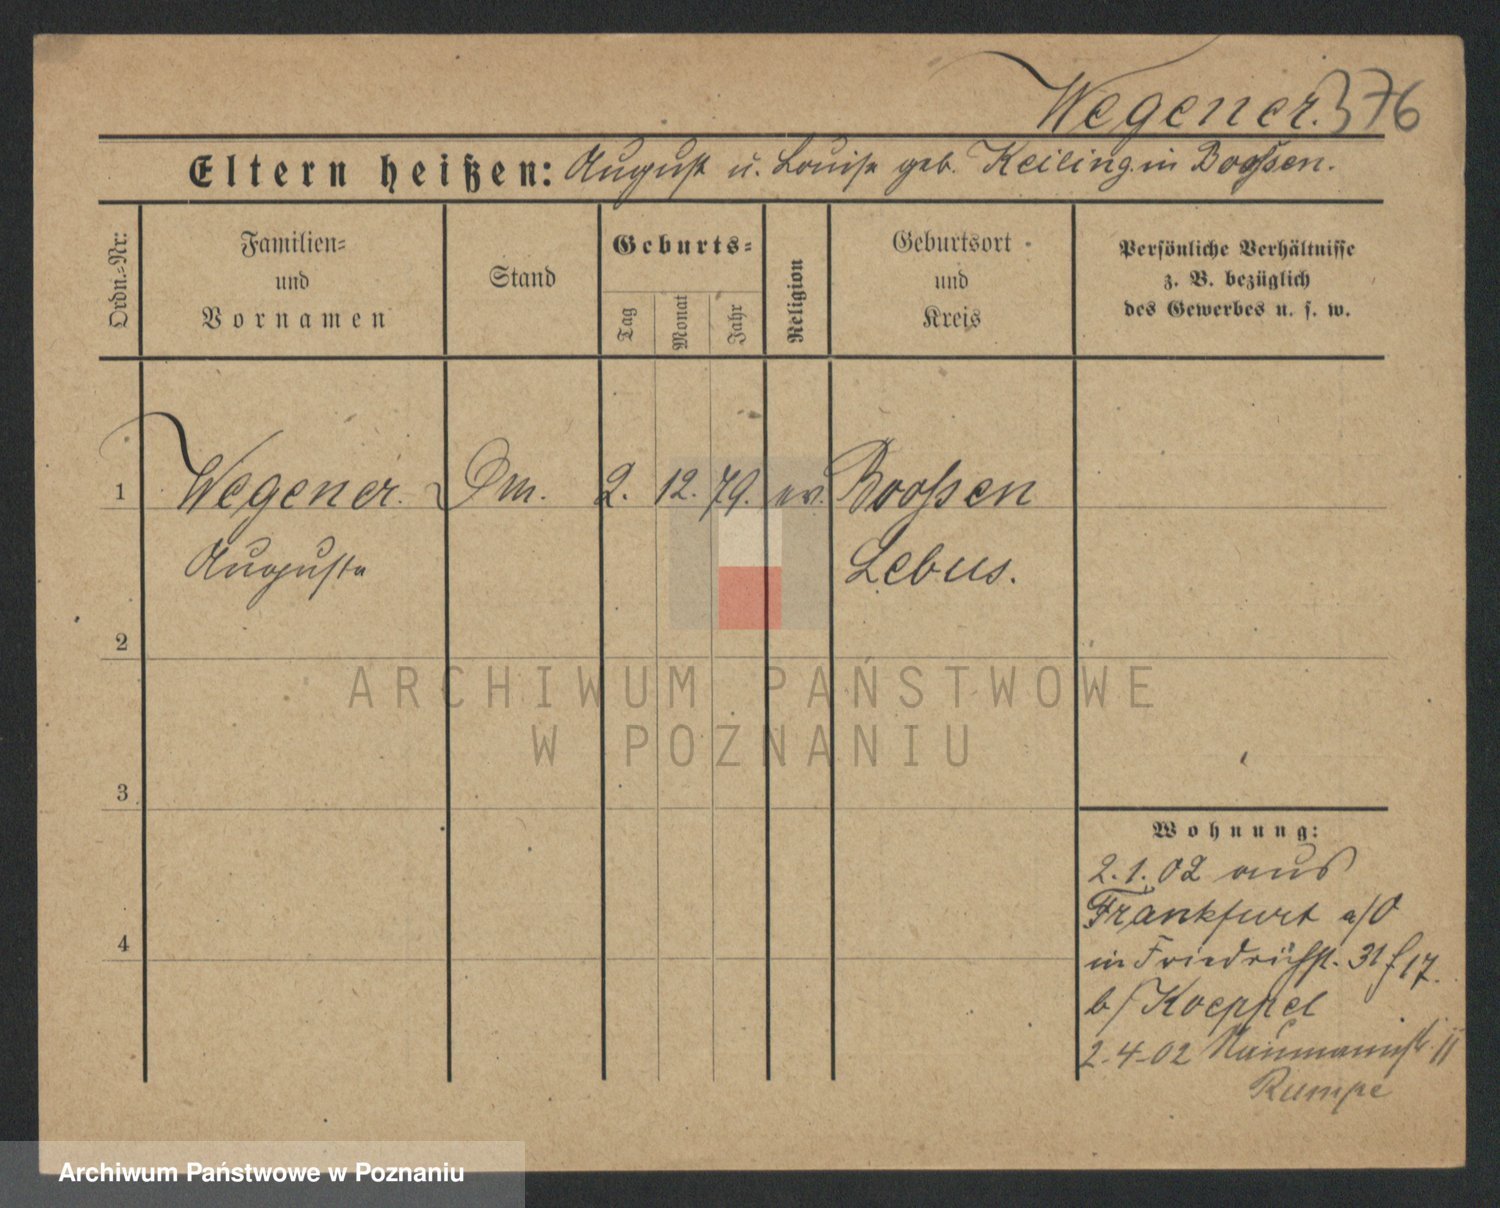 Wegener. 376
Eltern heißen: August u. Louise geb. Keiling in Boossen.
Ordn.-Nr:
Familien-
und
Vornamen
Stand
Geburts-
Tag
Monat
Jahr
Religion
Geburtsort
und
Kreis
Persönliche Verhältnisse
z. B. bezüglich
des Gewerbes u. s. w.
1 Wegener. Dm. 2. 12. 79. ev. Boossen
Auguste Lebus.
2
3
4
ARCHIWUM PAŃSTWOWE
W POZNANIU
Wohnung:
2.1.02 aus
Frankfurt a/O
in Friedrichst. 31 17.
b/ Koeppel
2-4-02 Naumannstr. 11
Rumpe
Archiwum Państwowe w Poznaniu